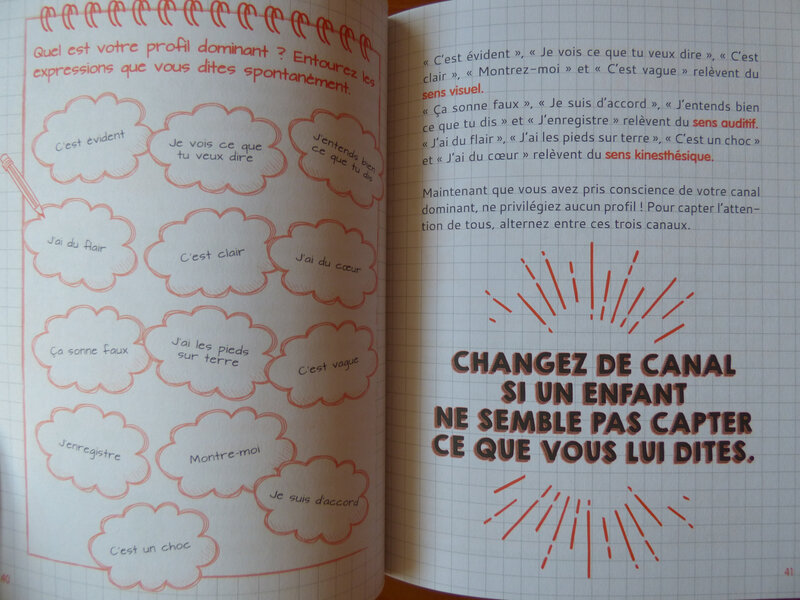 Quel est votre profil dominant ? Entourez les
expressions que vous dites spontanément.
C'est évident
Je vois ce que
tu veux dire
J'entends bien
ce que tu dis
J'ai du flair
C'est clair
J'ai du cœur
Ça sonne faux
J'ai les pieds
sur terre
C'est vague
J'enregistre
Montre-moi
Je suis d'accord
C'est un choc
40
« C'est évident », « Je vois ce que tu veux dire », « C'est
clair », « Montrez-moi » et « C'est vague » relèvent du
sens visuel.
« Ça sonne faux », « Je suis d'accord », « J'entends bien
ce que tu dis » et « J'enregistre » relèvent du sens auditif.
« J'ai du flair », « J'ai les pieds sur terre », « C'est un choc »
et « J'ai du cœur » relèvent du sens kinesthésique.
Maintenant que vous avez pris conscience de votre canal
dominant, ne privilégiez aucun profil ! Pour capter l'atten-
tion de tous, alternez entre ces trois canaux.
CHANGEZ DE CANAL
SI UN ENFANT
NE SEMBLE PAS CAPTER
CE QUE VOUS LUI DITES.
41